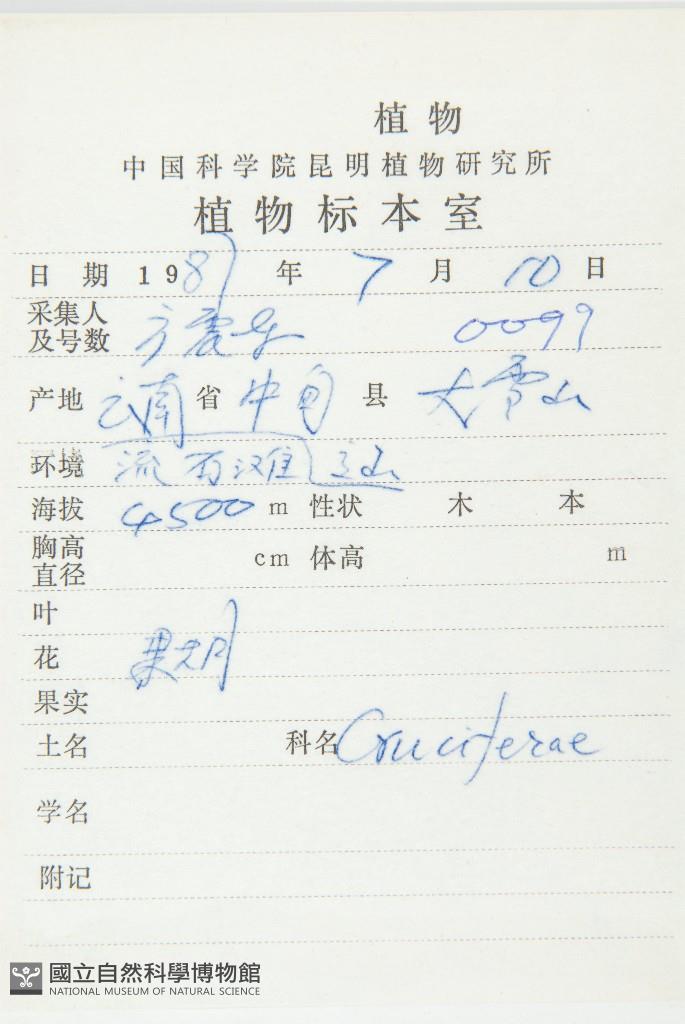 植物
中国科学院昆明植物研究所
植物标本室
日期 1987年 7月 10日
采集人及号数 方震东 0099
产地 云南省 中甸县 大雪山
环境 流石滩
海拔 4500 m 性状 木 本
胸高直径 cm 体高 m
叶
花
果实
土名 科名 Cruciferae
学名
附记
國立自然科學博物館
NATIONAL MUSEUM OF NATURAL SCIENCE